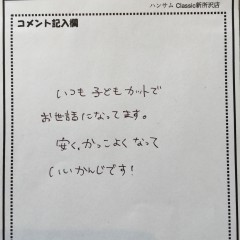 ハンサム Classic新所沢店
コメント記入欄
いつも 子ども カットで
お世話になってます。
安く、かっこよく なって
いいかんじです!